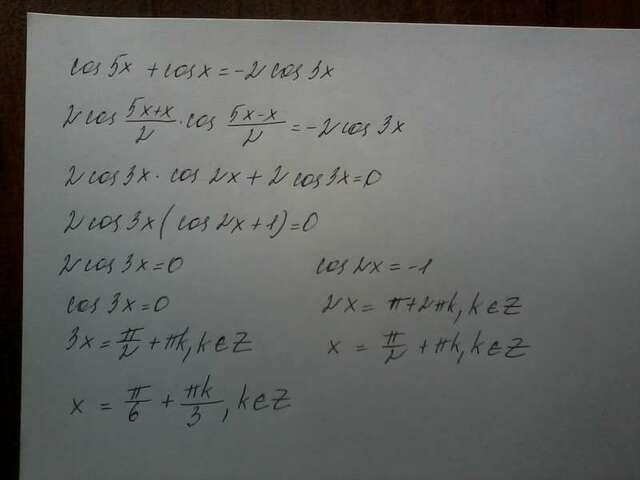 cos 5x + cos x = -2 cos 3x
2 cos (5x+x)/2 · cos (5x-x)/2 = -2 cos 3x
2 cos 3x · cos 2x + 2 cos 3x = 0
2 cos 3x (cos 2x + 1) = 0
2 cos 3x = 0 cos 2x = -1
cos 3x = 0 2x = π + 2πk, k∈Z
3x = π/2 + πk, k∈Z x = π/2 + πk, k∈Z
x = π/6 + πk/3, k∈Z